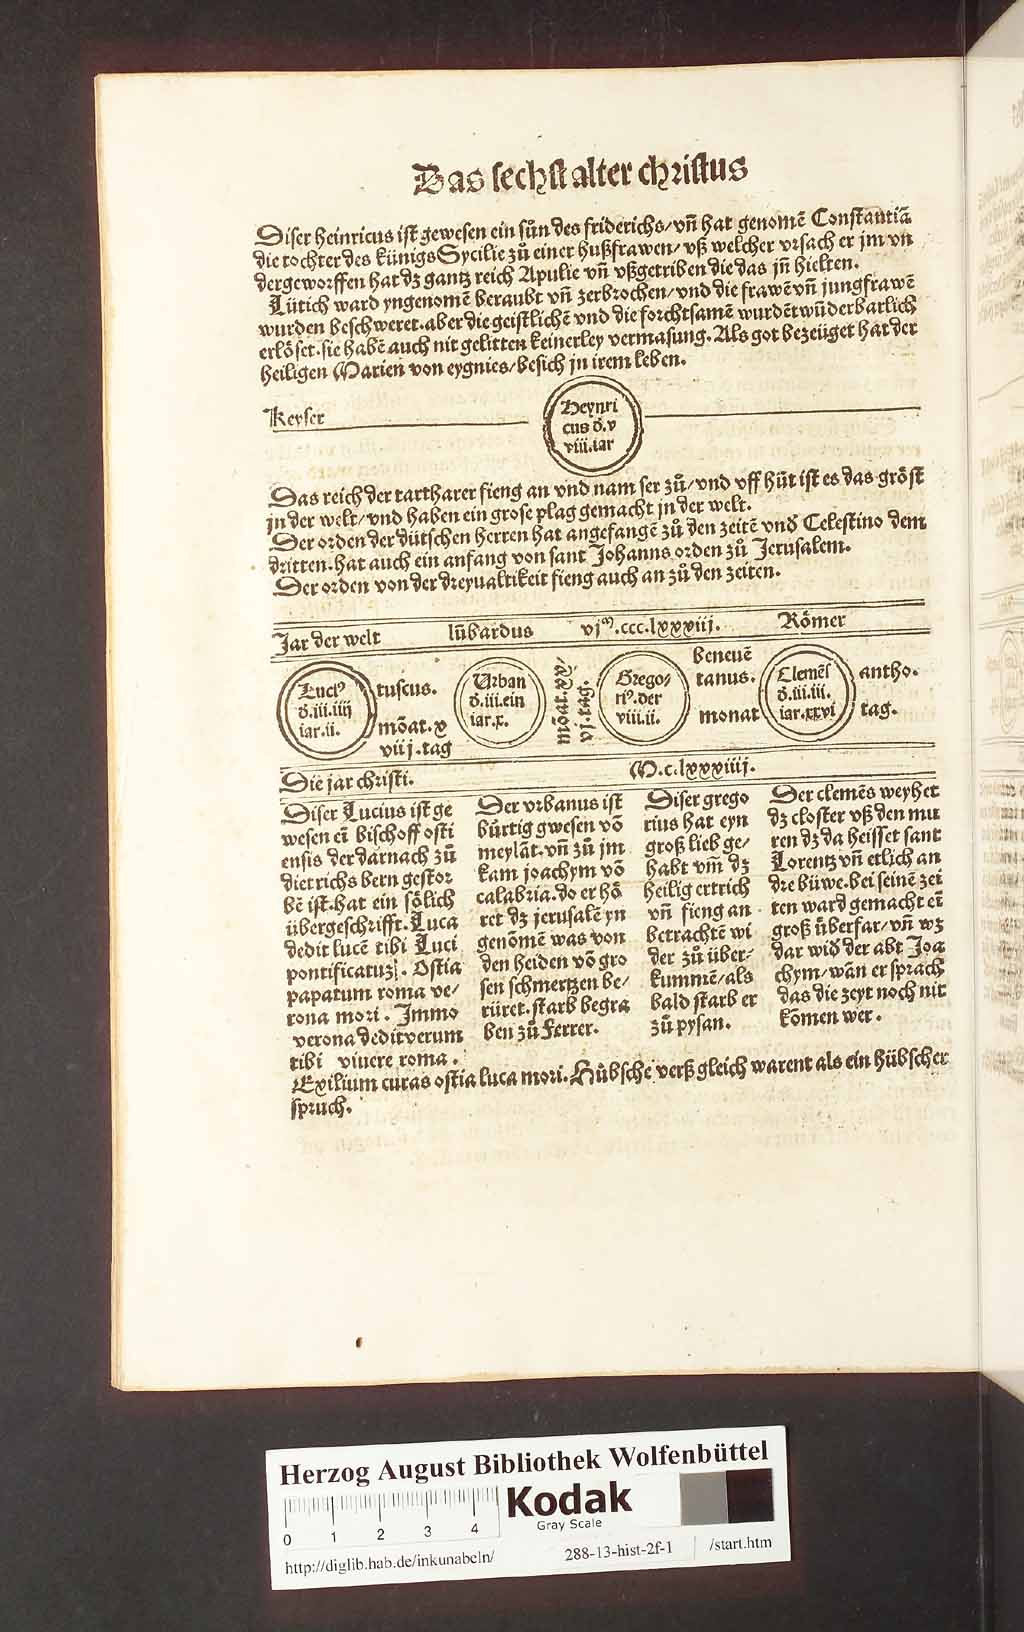 Das sechst alter christus
Diser heinricus ist gewesen ein sůn des friderichs/ vñ hat genomē Constantiā
die tochter des künigs Sycilie zů einer hußfrawen/ vß welcher vrsach er jm vn
dergeworffen hat dz gantz reich Apulie vñ vßgetriben die das jñ hielten.
Lütich ward yngenomē beraubt vñ zerbrochen/ vnd die frawē vñ jungfrawē
wurden beschweret. aber die geistlichē vnd die forchtsamē wurdēt wūderbarlich
erlöset. sie habē auch nit gelitten keinerley vermasung. Als got bezeüget hat der
heiligen Marien von eygnies/ besich jn irem leben.
Keyser
Heynri
cus d̄. v
viii. iar
Das reich der tartharer fieng an vnd nam ser zů/ vnd vff hüt ist es das gröst
jn der welt/ vnd haben ein grose plag gemacht jn der welt.
Der orden der dütschen herren hat angefangē zů den zeitē vnd̄ Celestino dem
dritten. hat auch ein anfang von sant Johanns orden zů Jerusalem.
Der orden von der dreyualtikeit fieng auch an zů den zeiten.
Jar der welt lūbardus vjᵐ. ccc. lxxxiij. Römer
Luciꝰ
d̄. iii. iiij
iar. ii.
tuscus.
mōat. x
viij. tag
Urban
d̄. iii. ein
iar. x.
mōat. xx.
vj. tag.
Grego/
riꝰ. der
viii. ii.
beneuē
tanus.
monat
Clemēs
d̄. iii. iii.
iar. xxvi
antho.
tag.
Die jar christi. M. c. lxxxiiij.
Diser Lucius ist ge
wesen eī bischoff osti
ensis der darnach zů
dietrichs bern gestor
bē ist. hat ein sölich
übergeschrifft. Luca
dedit lucē tibi Luci
pontificatuz. Ostia
papatum roma ve/
rona mori. Immo
verona dedit verum
tibi viuere roma.
Der vrbanus ist
bürtig gwesen vō
meylāt. vñ zů jm
kam joachym vō
calabria. do er hō
ret dz jerusalē yn
genōmē was von
den heiden vō gro
sen schmertzen be/
rüret. starb begra
ben zů Ferrer.
Diser grego
rius hat eyn
groß lieb ge/
habt vm̄ dz
heilig ertrich
vñ fieng an
betrachtē wi
der zů über/
kummē/ als
bald starb er
zů pysan.
Der clemēs weyhet
dz closter vß den mu
ren dz da heisset sant
Lorentz vñ etlich an
dre büwe. bei seinē zei
ten ward gemacht eī
groß überfar/ vñ wz
dar wid̄ der abt Joa
chym/ wān er sprach
das die zeyt noch nit
kōmen wer.
Exilium curas ostia luca mori. Hübsche verß gleich warent als ein hübscher
spruch.
Herzog August Bibliothek Wolfenbüttel
Kodak
Gray Scale
0 1 2 3 4
http://diglib.hab.de/inkunabeln/ 288-13-hist-2f-1 /start.htm